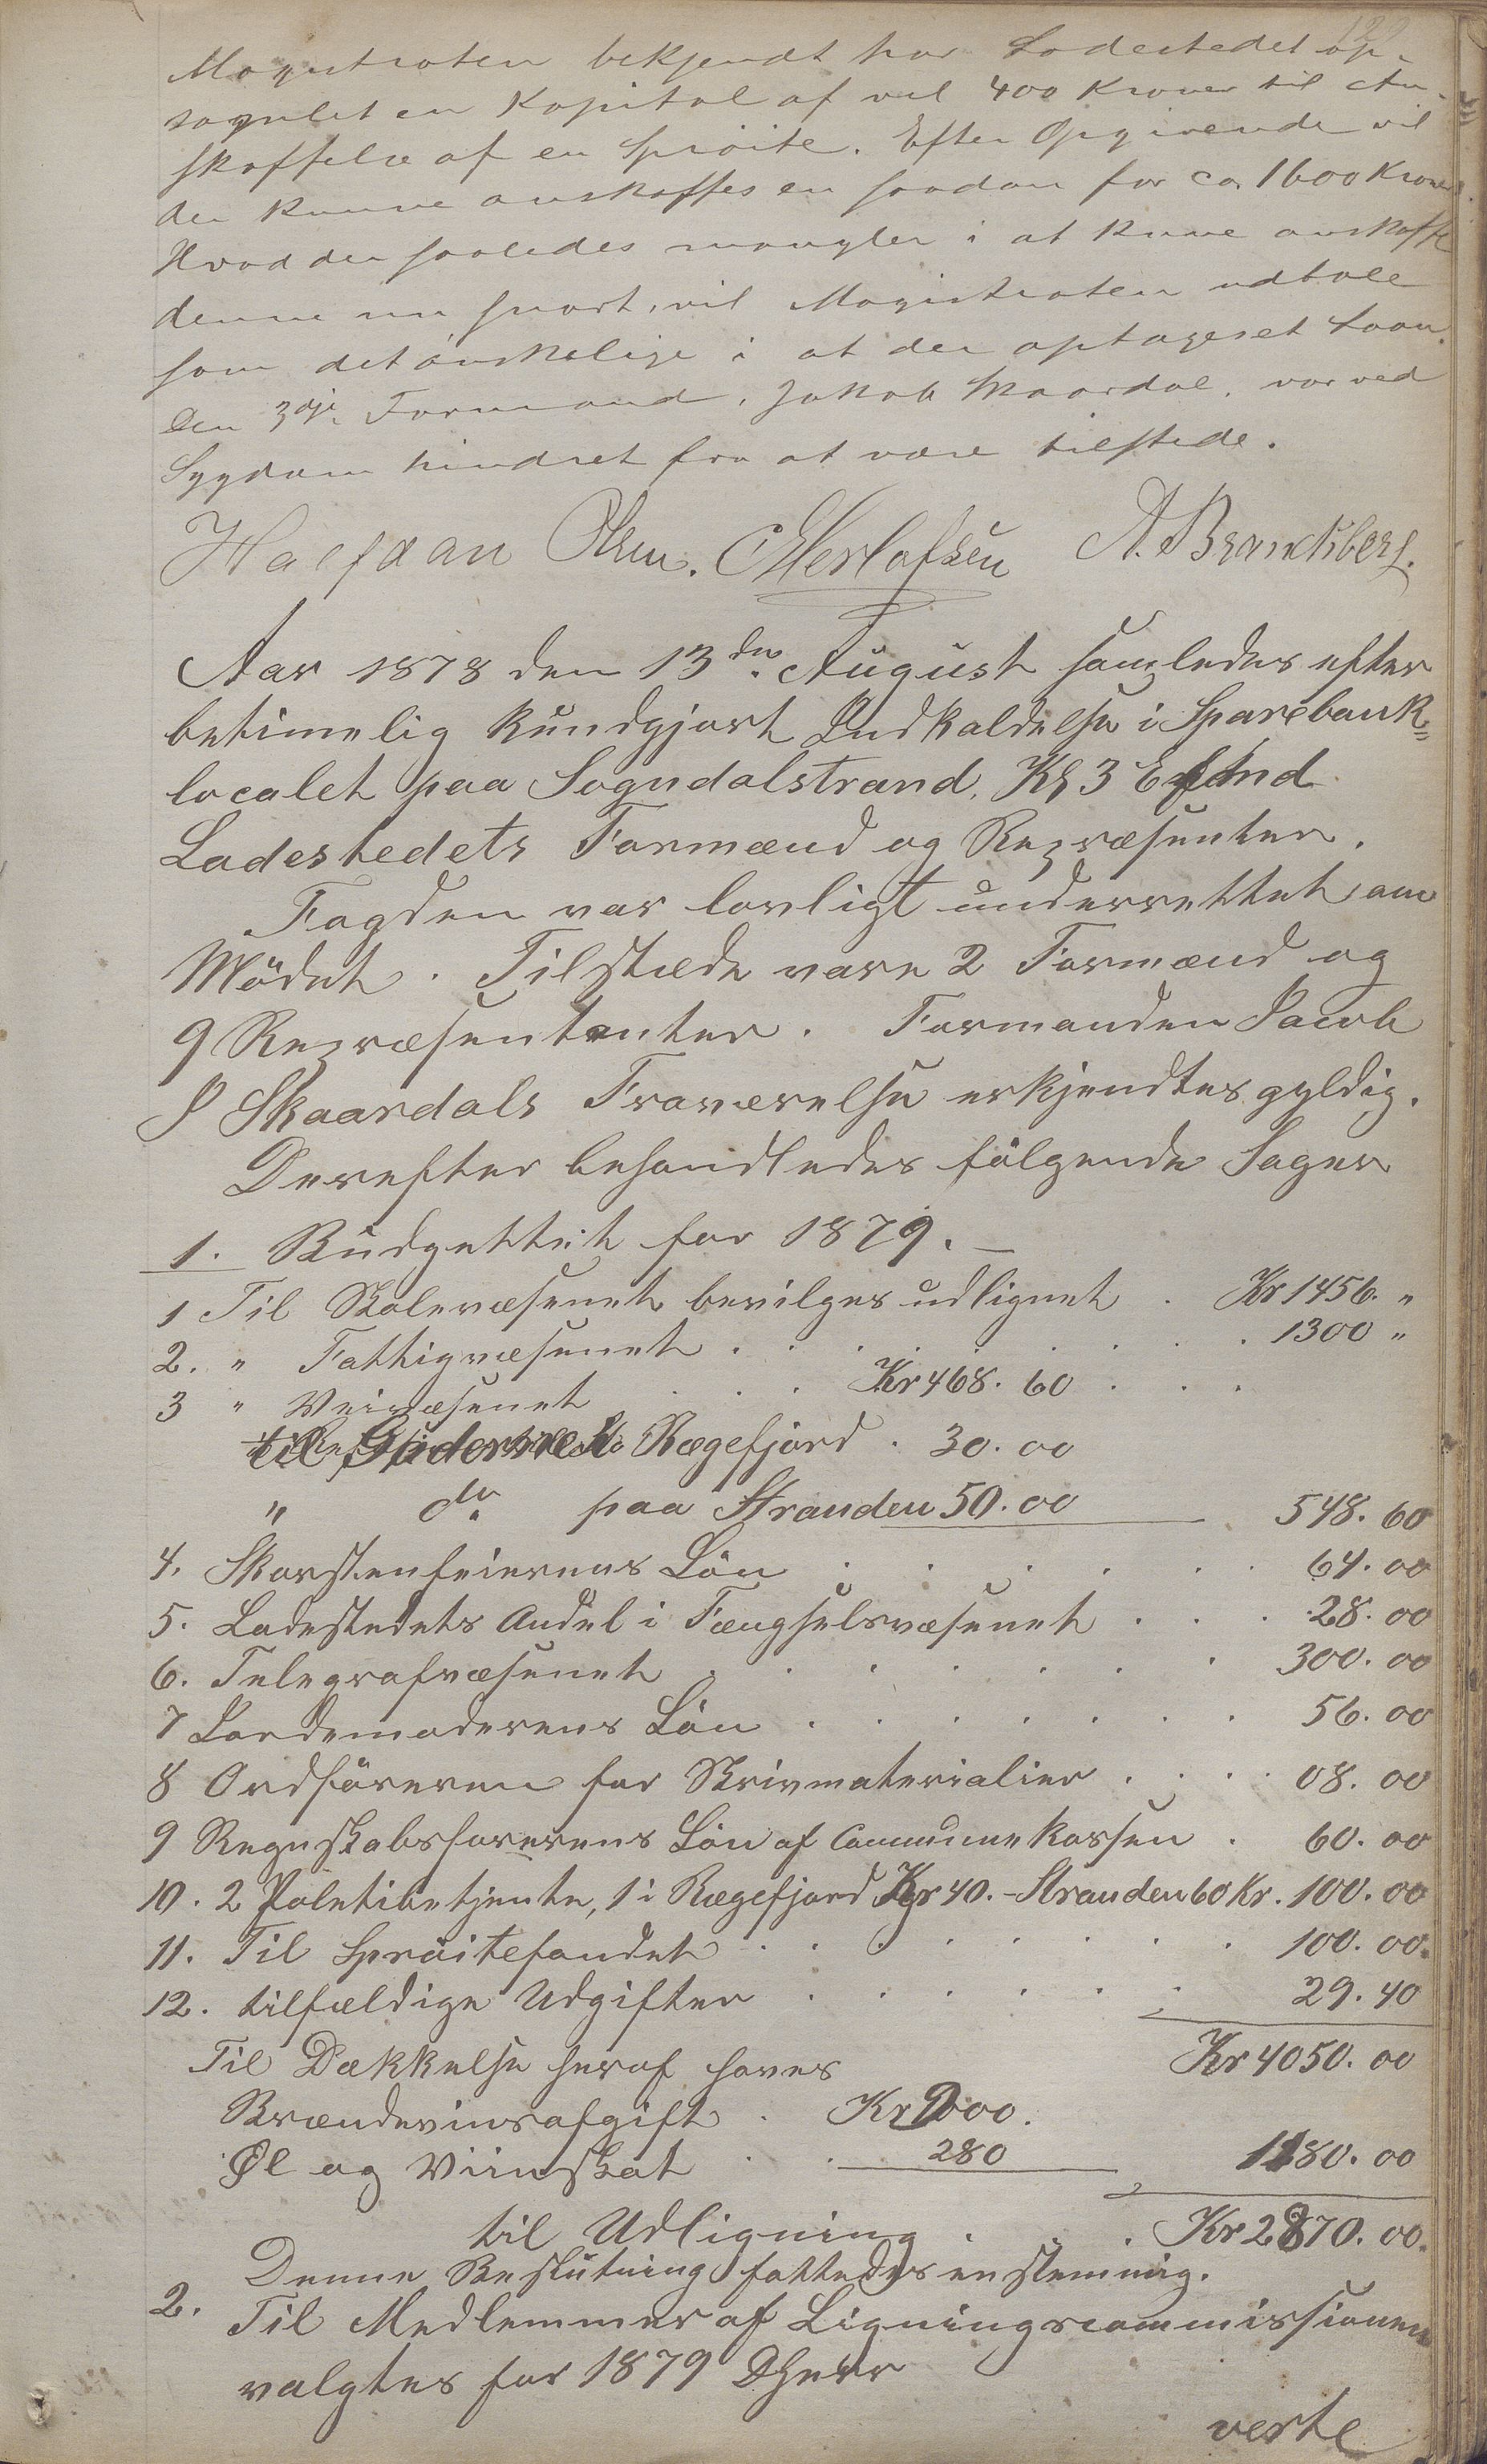 Magistraten bekjendt har Ladestedet op-
samlet en Kapital af vel 400 Kroner til An-
skaffelse af en Sprøite. Efter Opgivende vil
der kunne anskaffes en saadan for ca 1600 Kroner
Hvad der saaledes mangler i at kunne anskaffe
denne nu snart, vil Magistraten udtale
som det ønskelige i at der optages et Laan.
Den 3die Formand, Jakob Skaardal, var ved
Sygdom hindret fra at være tilstede.
Halfdan Olsen. Herlofsen A. Branckberg.
Aar 1878 den 13de August samledes efter
betimelig kundgjort Indkaldelse i Sparebank-
localet paa Sogndalstrand, Kl 3 Efmd
Ladestedets Formænd og Repræsenter.
Fogden var lovligt underrettet om
Mødet. Tilstede vare 2 Formænd og
9 Repræsentanter. Formanden Jacob
J Skaardals Fraværelse erkjendtes gyldig.
Derefter behandledes følgende Sager
1. Budgettet for 1879.
1 Til Skolevæsenet bevilges udlignet . Kr 1456. "
2. " Fattigvæsenet . . . . 1300 "
3 " Veivæsenet . . . Kr 468. 60 . . .
til Rægefjord . 30. 00
" do paa Stranden 50. 00 548. 60
4. Skorstenfeierens Løn . . . . 64. 00
5. Ladestedets Andel i Fængselsvæsenet . . . 28. 00
6. Telegrafvæsenet . . . . 300. 00
7 Jordemoderens Løn . . . . 56. 00
8 Ordføreren for Skrivmaterialier . . . . 08. 00
9 Regnskabsførerens Løn af Communekassen . 60. 00
10. 2 Politibetjente, 1 i Rægefjord Kr 40. - Stranden 60 Kr. 100. 00
11. Til Sprøitefondet . . . . 100. 00.
12. tilfældige Udgifter . . . . 29. 40
Til Dækkelse heraf haves Kr 4050. 00
Brændevinsafgift . Kr 900.
Øl og Viinskat . . 280 1180. 00
til Udligning . . . Kr 2870. 00.
Denne Beslutning fattedes enstemmig.
2. Til Medlemmer af Ligningscommissionen
valgtes for 1879 DHerr
verte